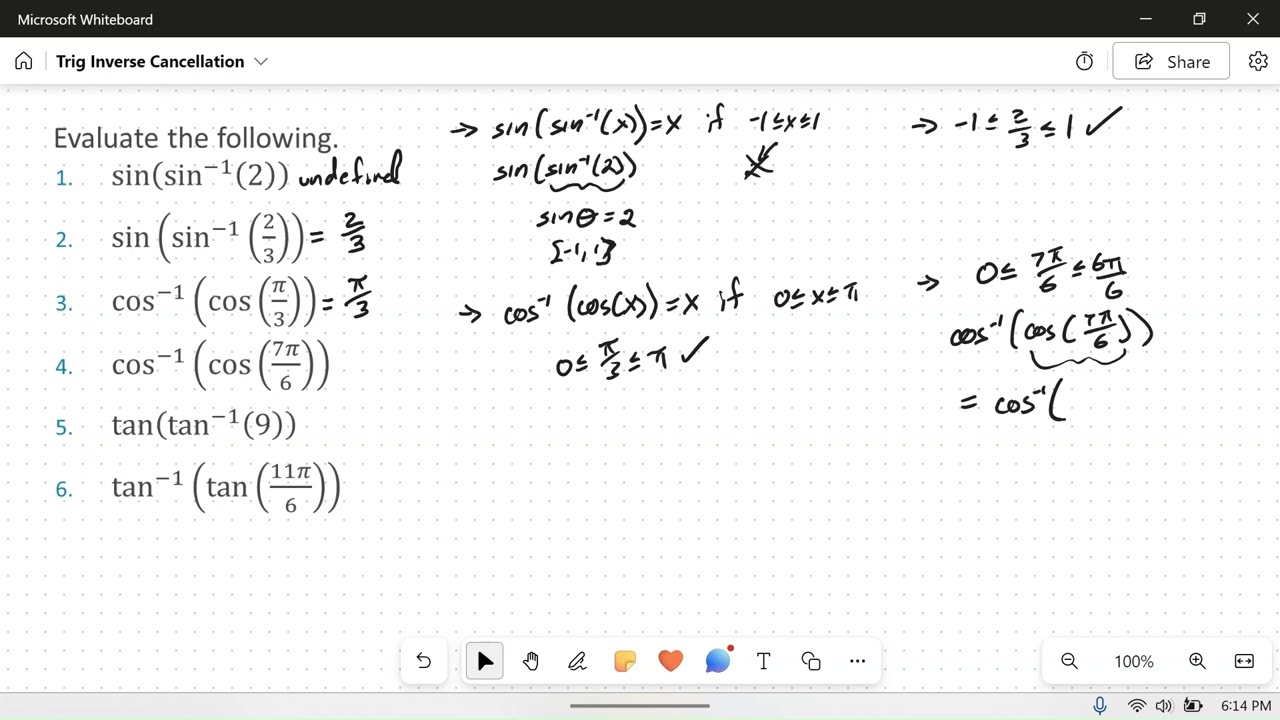 Microsoft Whiteboard
Trig Inverse Cancellation
Share
Evaluate the following.
1. sin(sin⁻¹(2)) undefined
2. sin(sin⁻¹(2/3)) = 2/3
3. cos⁻¹(cos(π/3)) = π/3
4. cos⁻¹(cos(7π/6))
5. tan(tan⁻¹(9))
6. tan⁻¹(tan(11π/6))
→ sin(sin⁻¹(x)) = x if -1 ≤ x ≤ 1
sin(sin⁻¹(2))
sin θ = 2
[-1, 1]
→ cos⁻¹(cos(x)) = x if 0 ≤ x ≤ π
0 ≤ π/3 ≤ π ✓
→ -1 ≤ 2/3 ≤ 1 ✓
→ 0 ≤ 7π/6 ≤ 6π/6
cos⁻¹(cos(7π/6))
= cos⁻¹(
T
100%
6:14 PM